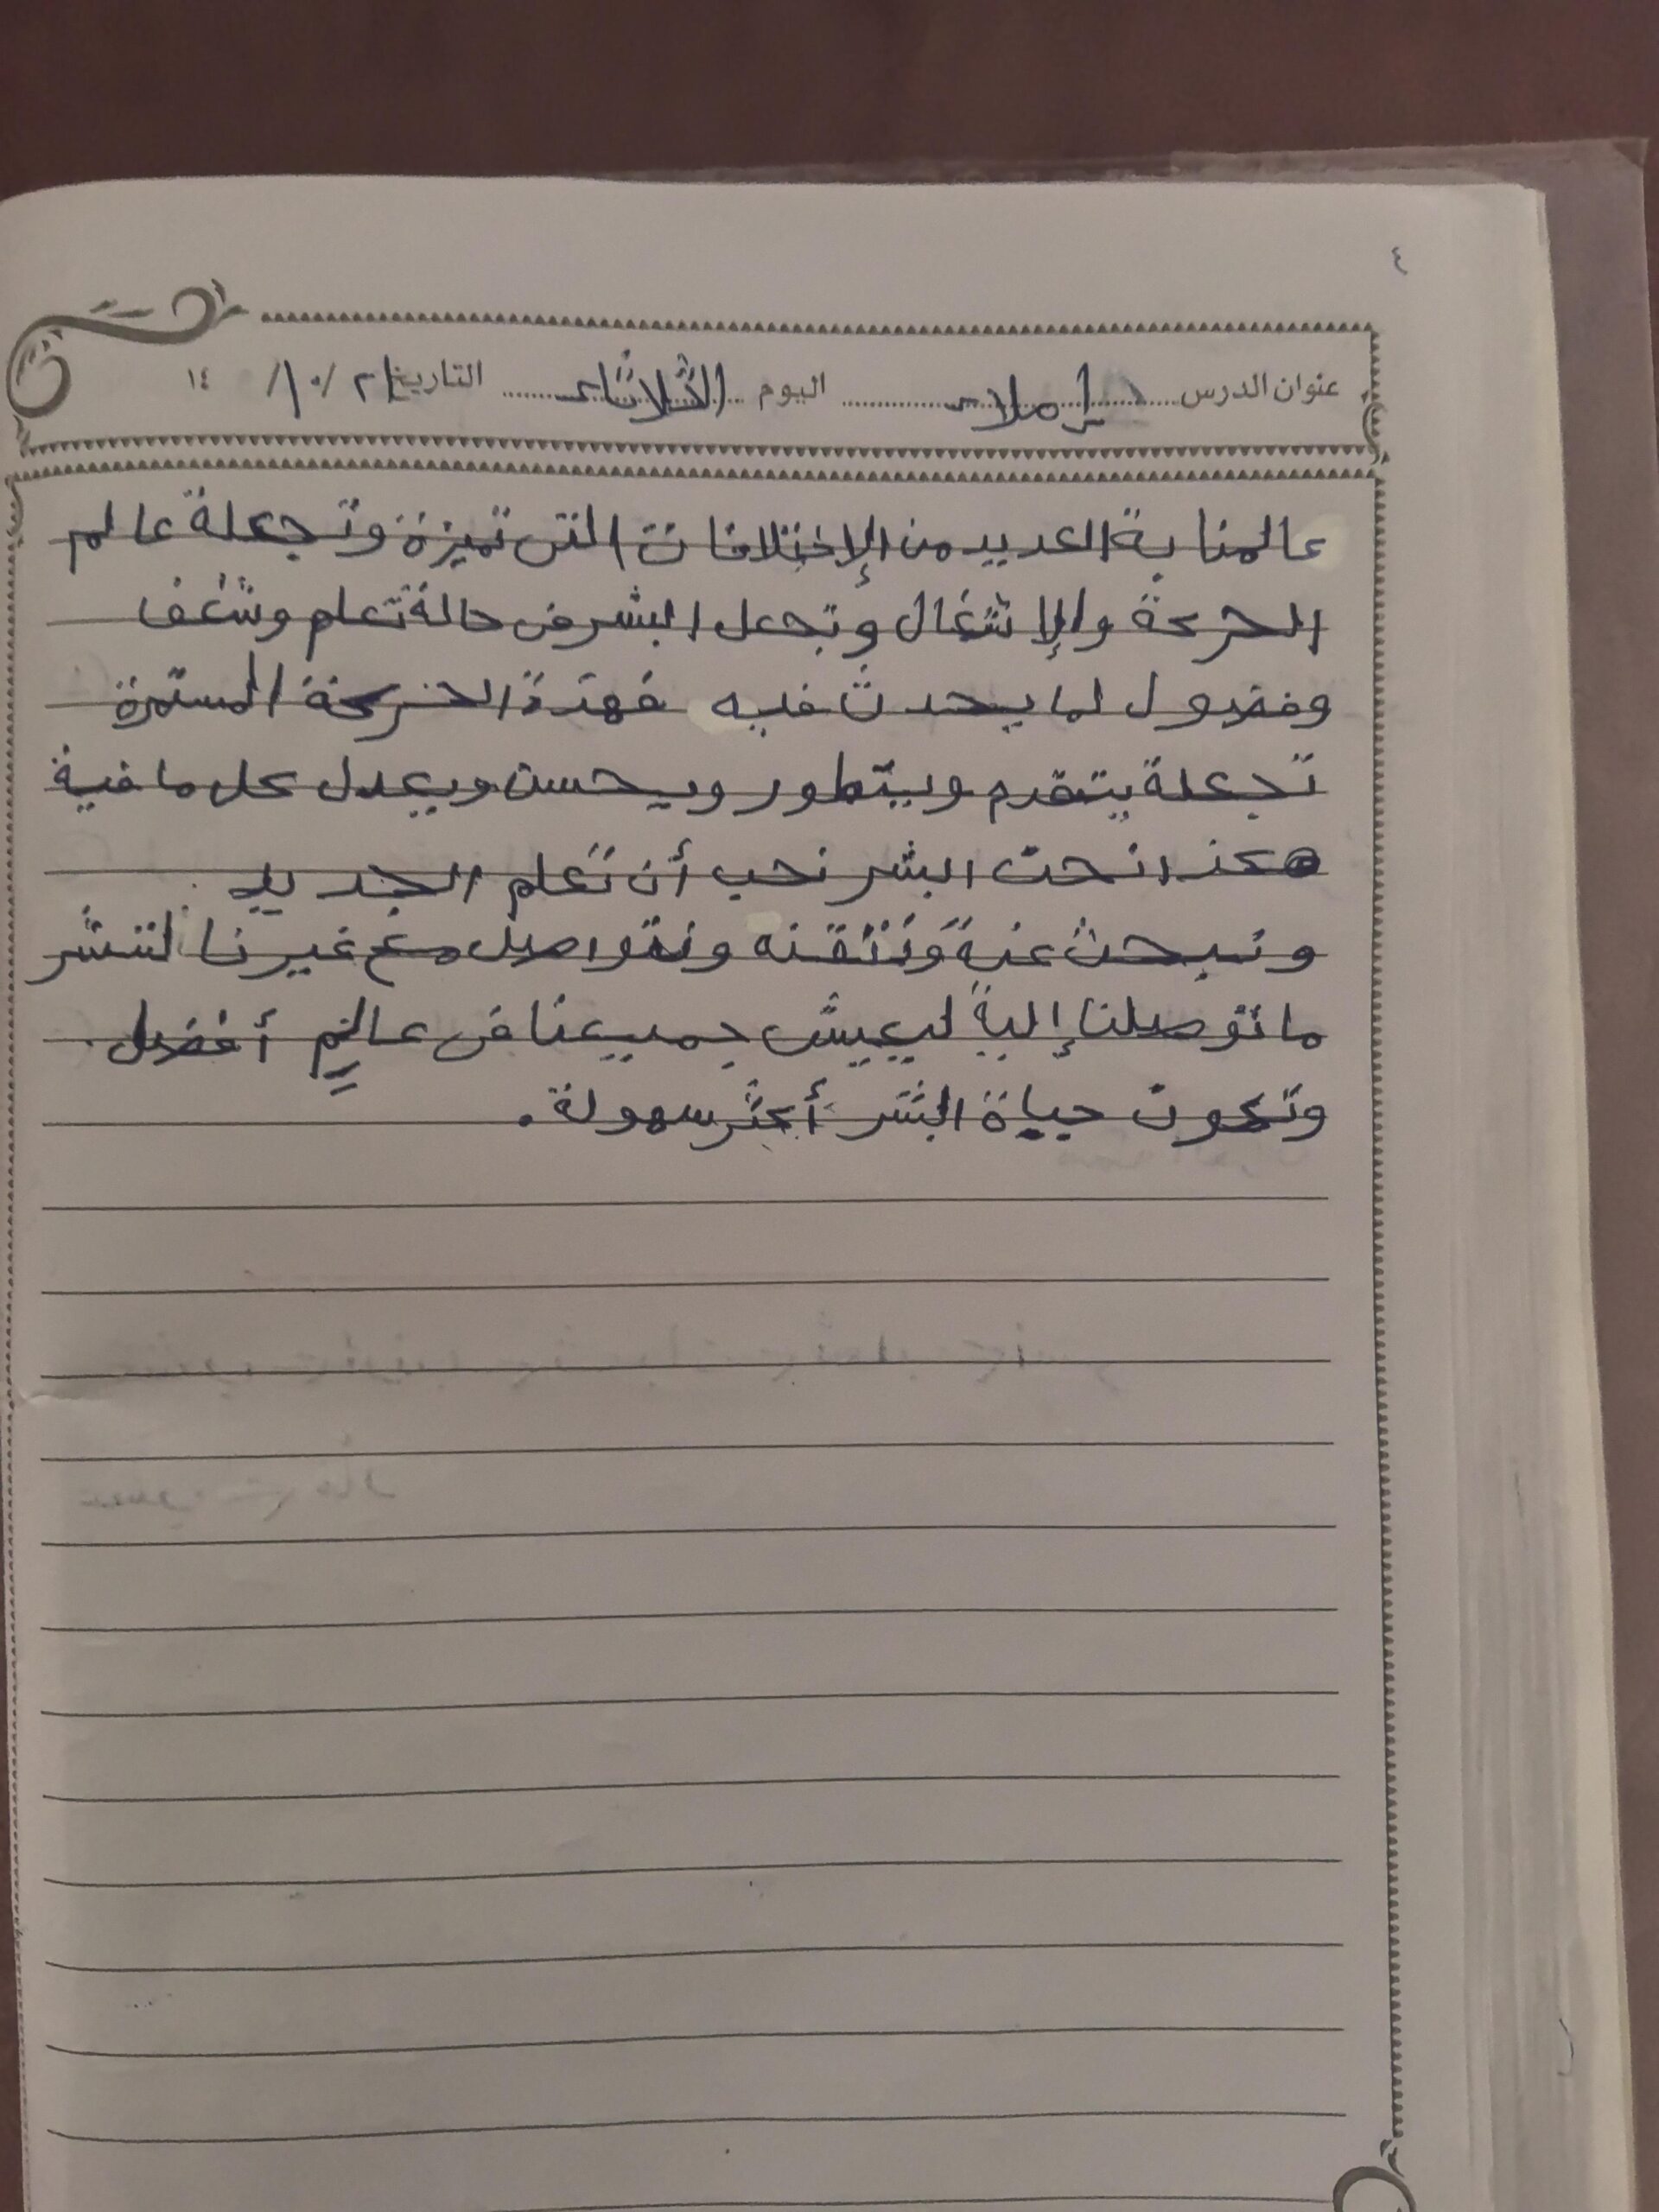 ٤
عنوان الدرس إملاء اليوم الثلاثاء التاريخ ٢١ / ١٠ / ١٤
عالمنا بة العديد من الإختلافات التى تميزة وتجعلة عالم
الحركة والإنشغال وتجعل البشر فى حالة تعلم وشغف
وفضول لما يحدث فيه فهذة الحركة المستمرة
تجعلة يتقدم ويتطور ويحسن ويعدل كل ما فية
هكذا نحن البشر نحب أن نعلم الجديد
ونبحث عنة ونتقنه ونتواصل مع غيرنا لننشر
ما توصلنا إلية ليعيش جميعنا فى عالمٍ أفضل .
وتكون حياة البشر أكثر سهولة .